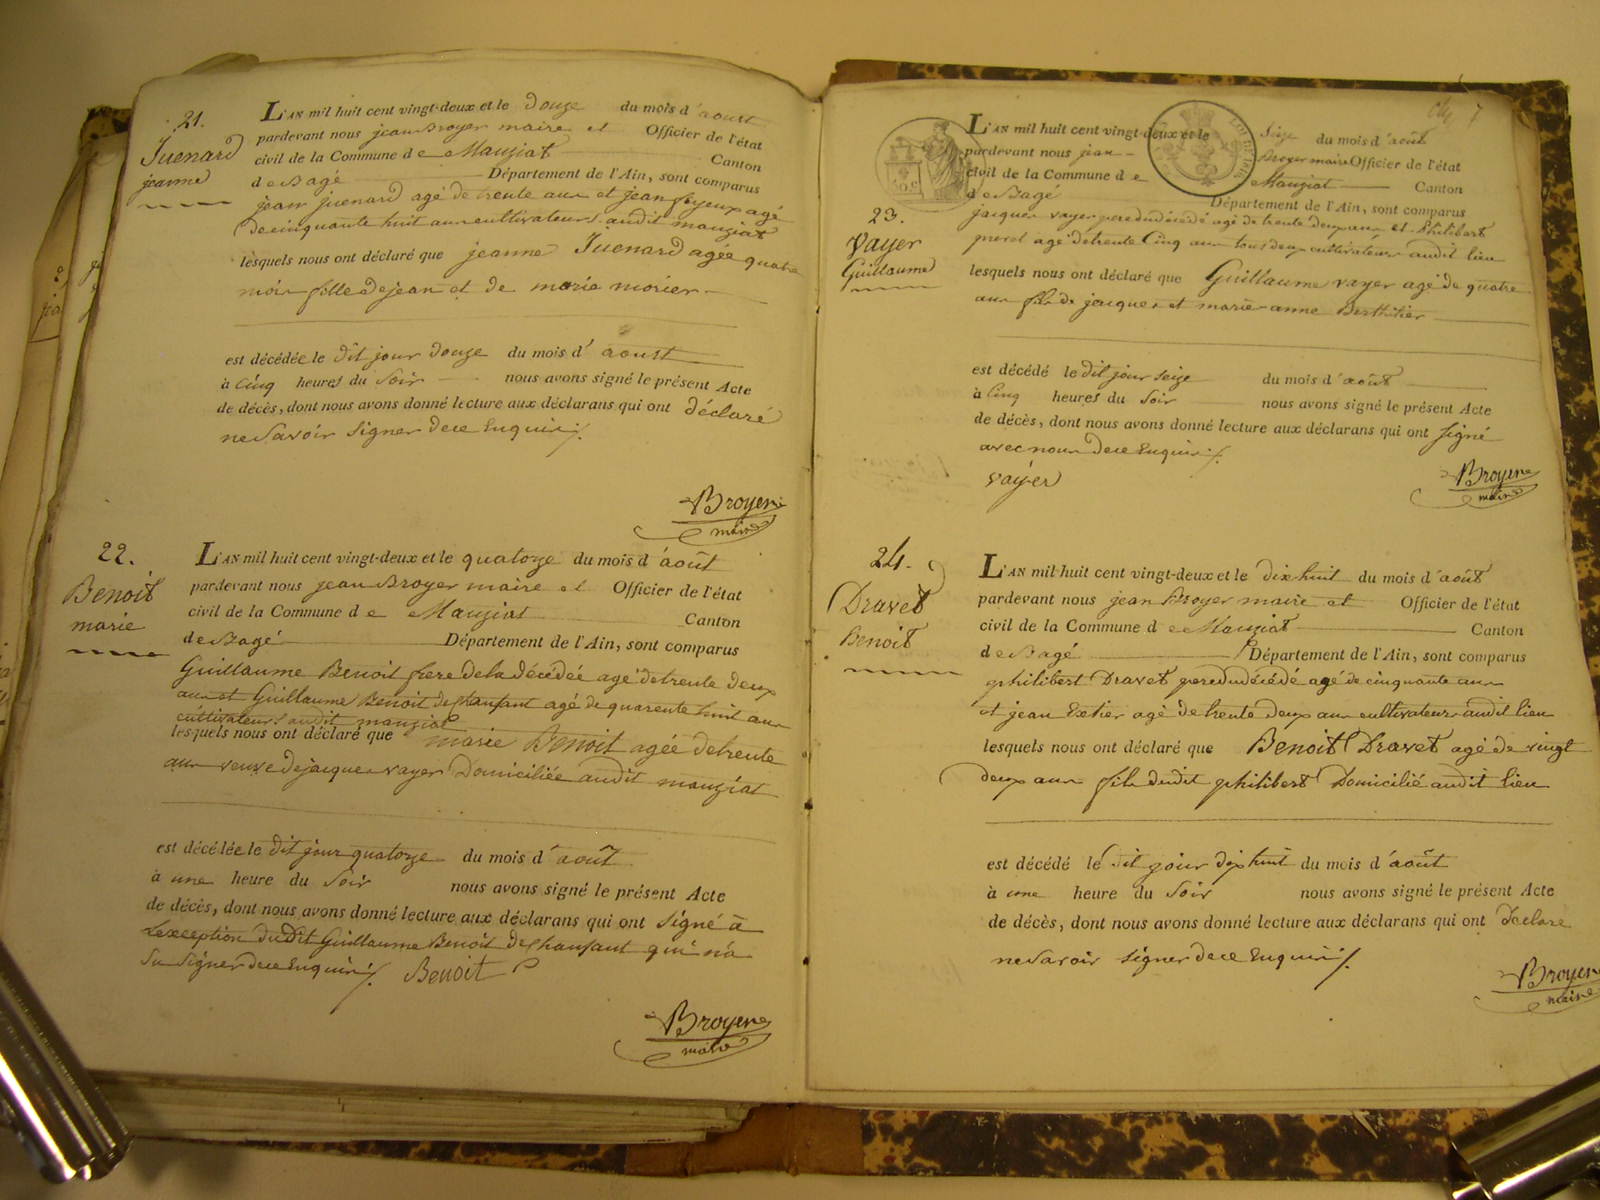 21.
Juenard
jeanne
L'AN mil huit cent vingt-deux et le douze du mois d'aoust
pardevant nous jean Broyer maire et Officier de l'état
civil de la Commune de Manziat Canton
de Bagé Département de l'Ain, sont comparus
jean juenard agé de trente ans et jean feyeux agé
de cinquante huit ans cultivateurs audit manziat
lesquels nous ont déclaré que jeanne Juenard agée quatre
mois fille de jean et de marie morier
est décédée le dit jour douze du mois d'aoust
à cinq heures du soir nous avons signé le présent Acte
de décès, dont nous avons donné lecture aux déclarans qui ont déclaré
ne savoir signer de ce enquis
Broyer
maire
22.
Benoit
marie
L'AN mil huit cent vingt-deux et le quatorze du mois d'août
pardevant nous jean Broyer maire et Officier de l'état
civil de la Commune de Manziat Canton
de Bagé Département de l'Ain, sont comparus
Guillaume Benoit frere de la décédée agé de trente deux
ans et Guillaume Benoit dechansant agé de quarente huit ans
cultivateurs audit manziat
lesquels nous ont déclaré que marie Benoit agée de trente
ans veuve de jacques vayer Domiciliée audit manziat
est décédée le dit jour quatorze du mois d'août
à une heure du soir nous avons signé le présent Acte
de décès, dont nous avons donné lecture aux déclarans qui ont signé à
Lexception dudit Guillaume Benoit dechansant qui n'a
su signer de ce enquis Benoit
Broyer
maire
7
23.
Vayer
Guillaume
L'AN mil huit cent vingt-deux et le seize du mois d'août
pardevant nous jean Broyer maire Officier de l'état
civil de la Commune de Manziat Canton
de Bagé Département de l'Ain, sont comparus
jacques vayer pere du décédé agé de trente deux ans et Philibert
perret agé de trente Cinq ans tous deux cultivateurs audit lieu
lesquels nous ont déclaré que Guillaume vayer agé de quatre
ans fils de jacques et marie anne Berthilier
est décédé le dit jour seize du mois d'août
à Cinq heures du soir nous avons signé le présent Acte
de décès, dont nous avons donné lecture aux déclarans qui ont signé
avec nous de ce enquis
vayer
Broyer
maire
24.
Dravet
Benoit
L'AN mil huit cent vingt-deux et le dix huit du mois d'août
pardevant nous jean Broyer maire et Officier de l'état
civil de la Commune de Manziat Canton
de Bagé Département de l'Ain, sont comparus
philibert Dravet pere du décédé agé de cinquante ans
et jean Extier agé de trente deux ans cultivateurs audit lieu
lesquels nous ont déclaré que Benoit Dravet agé de vingt
deux ans fils dudit philibert Domicilié audit lieu
est décédé le dit jour dix huit du mois d'août
à une heure du soir nous avons signé le présent Acte
de décès, dont nous avons donné lecture aux déclarans qui ont déclaré
ne savoir signer de ce enquis
Broyer
maire